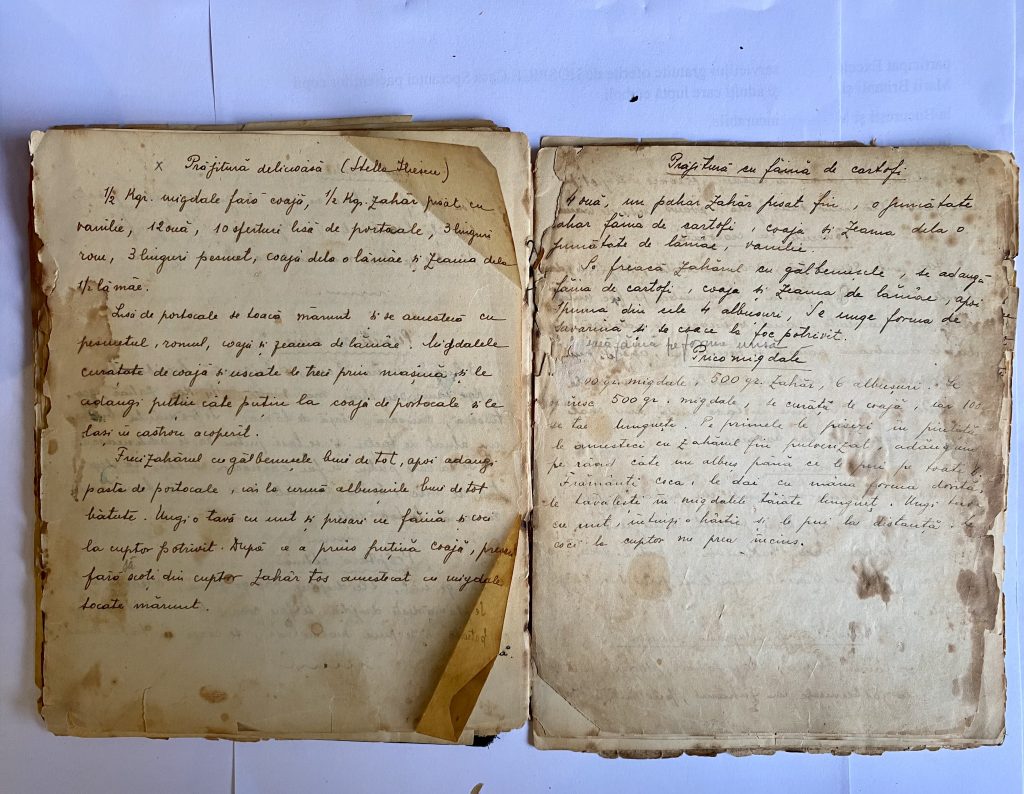 x Prăjitură delicioasă (Stella Iliescu)
1/2 Kgr. migdale fără coajă, 1/2 Kg, zahăr pisat cu
vanilie, 12 ouă, 10 sferturi lisă de portocale, 3 linguri
rom, 3 linguri pesmet, coajă dela o lămâe și zeama dela
1/2 lămâe.
Lisă de portocale se toacă mărunt și se amestecă cu
pesmetul, romul, coaja și zeama de lămâe. Migdalele
curățate de coajă și uscate le treci prin mașină și le
adăugi puțin câte puțin la coaja de portocale și le
lași în castron acoperit.
Freci zahărul cu gălbenușele bine de tot, apoi adaugi
pasta de portocale, iar la urmă albușurile bine de tot
bătute. Ungi o tavă cu unt și presari cu făină și coci
la cuptor potrivit. După ce a prins puțină coajă,
fără să scoți din cuptor zahăr tos amestecat cu migdale
tocate mărunt.
Prăjitură cu făină de cartofi
4 ouă, un pahar zahăr pisat fin, o jumătate
pahar făină de cartofi, coaja și zeama dela o
jumătate de lămâe, vanilie
Se freacă zahărul cu gălbenușele, se adaugă
făina de cartofi, coaja și zeama de lămâe, apoi
spuma din cele 4 albușuri, Se unge forma de
savarină și se coace la foc potrivit.
făină pe forma unsă
Pricomigdale
00 gr. migdale, 500 gr. zahăr, 6 albușuri. Se
500 gr. migdale, se curăță de coajă, iar 100
se tae lunguețe. Pe primele le pisezi în piuliță
le amesteci cu zahărul fin pulverizat, adăugând
pe rând câte un albuș până ce le pui pe toate 6.
Frământi coca, le dai cu mâna forma dorită,
le tăvălești în migdalele tăiate lunguieț. Ungi
cu unt, întingi o hârtie și le pui la distanță. Le
coci la cuptor nu prea încins.